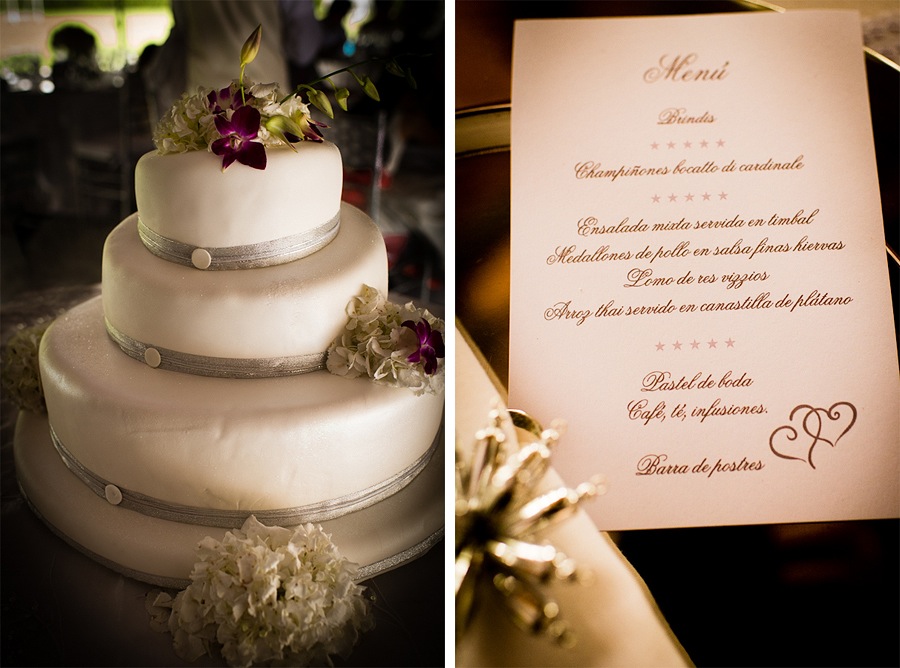 Menú
Brindis
Champiñones bocatto di cardinale
Ensalada mixta servida en timbal
Medallones de pollo en salsa finas hiervas
Lomo de res vizzios
Arroz thai servido en canastilla de plátano
Pastel de boda
Café, té, infusiones.
Barra de postres